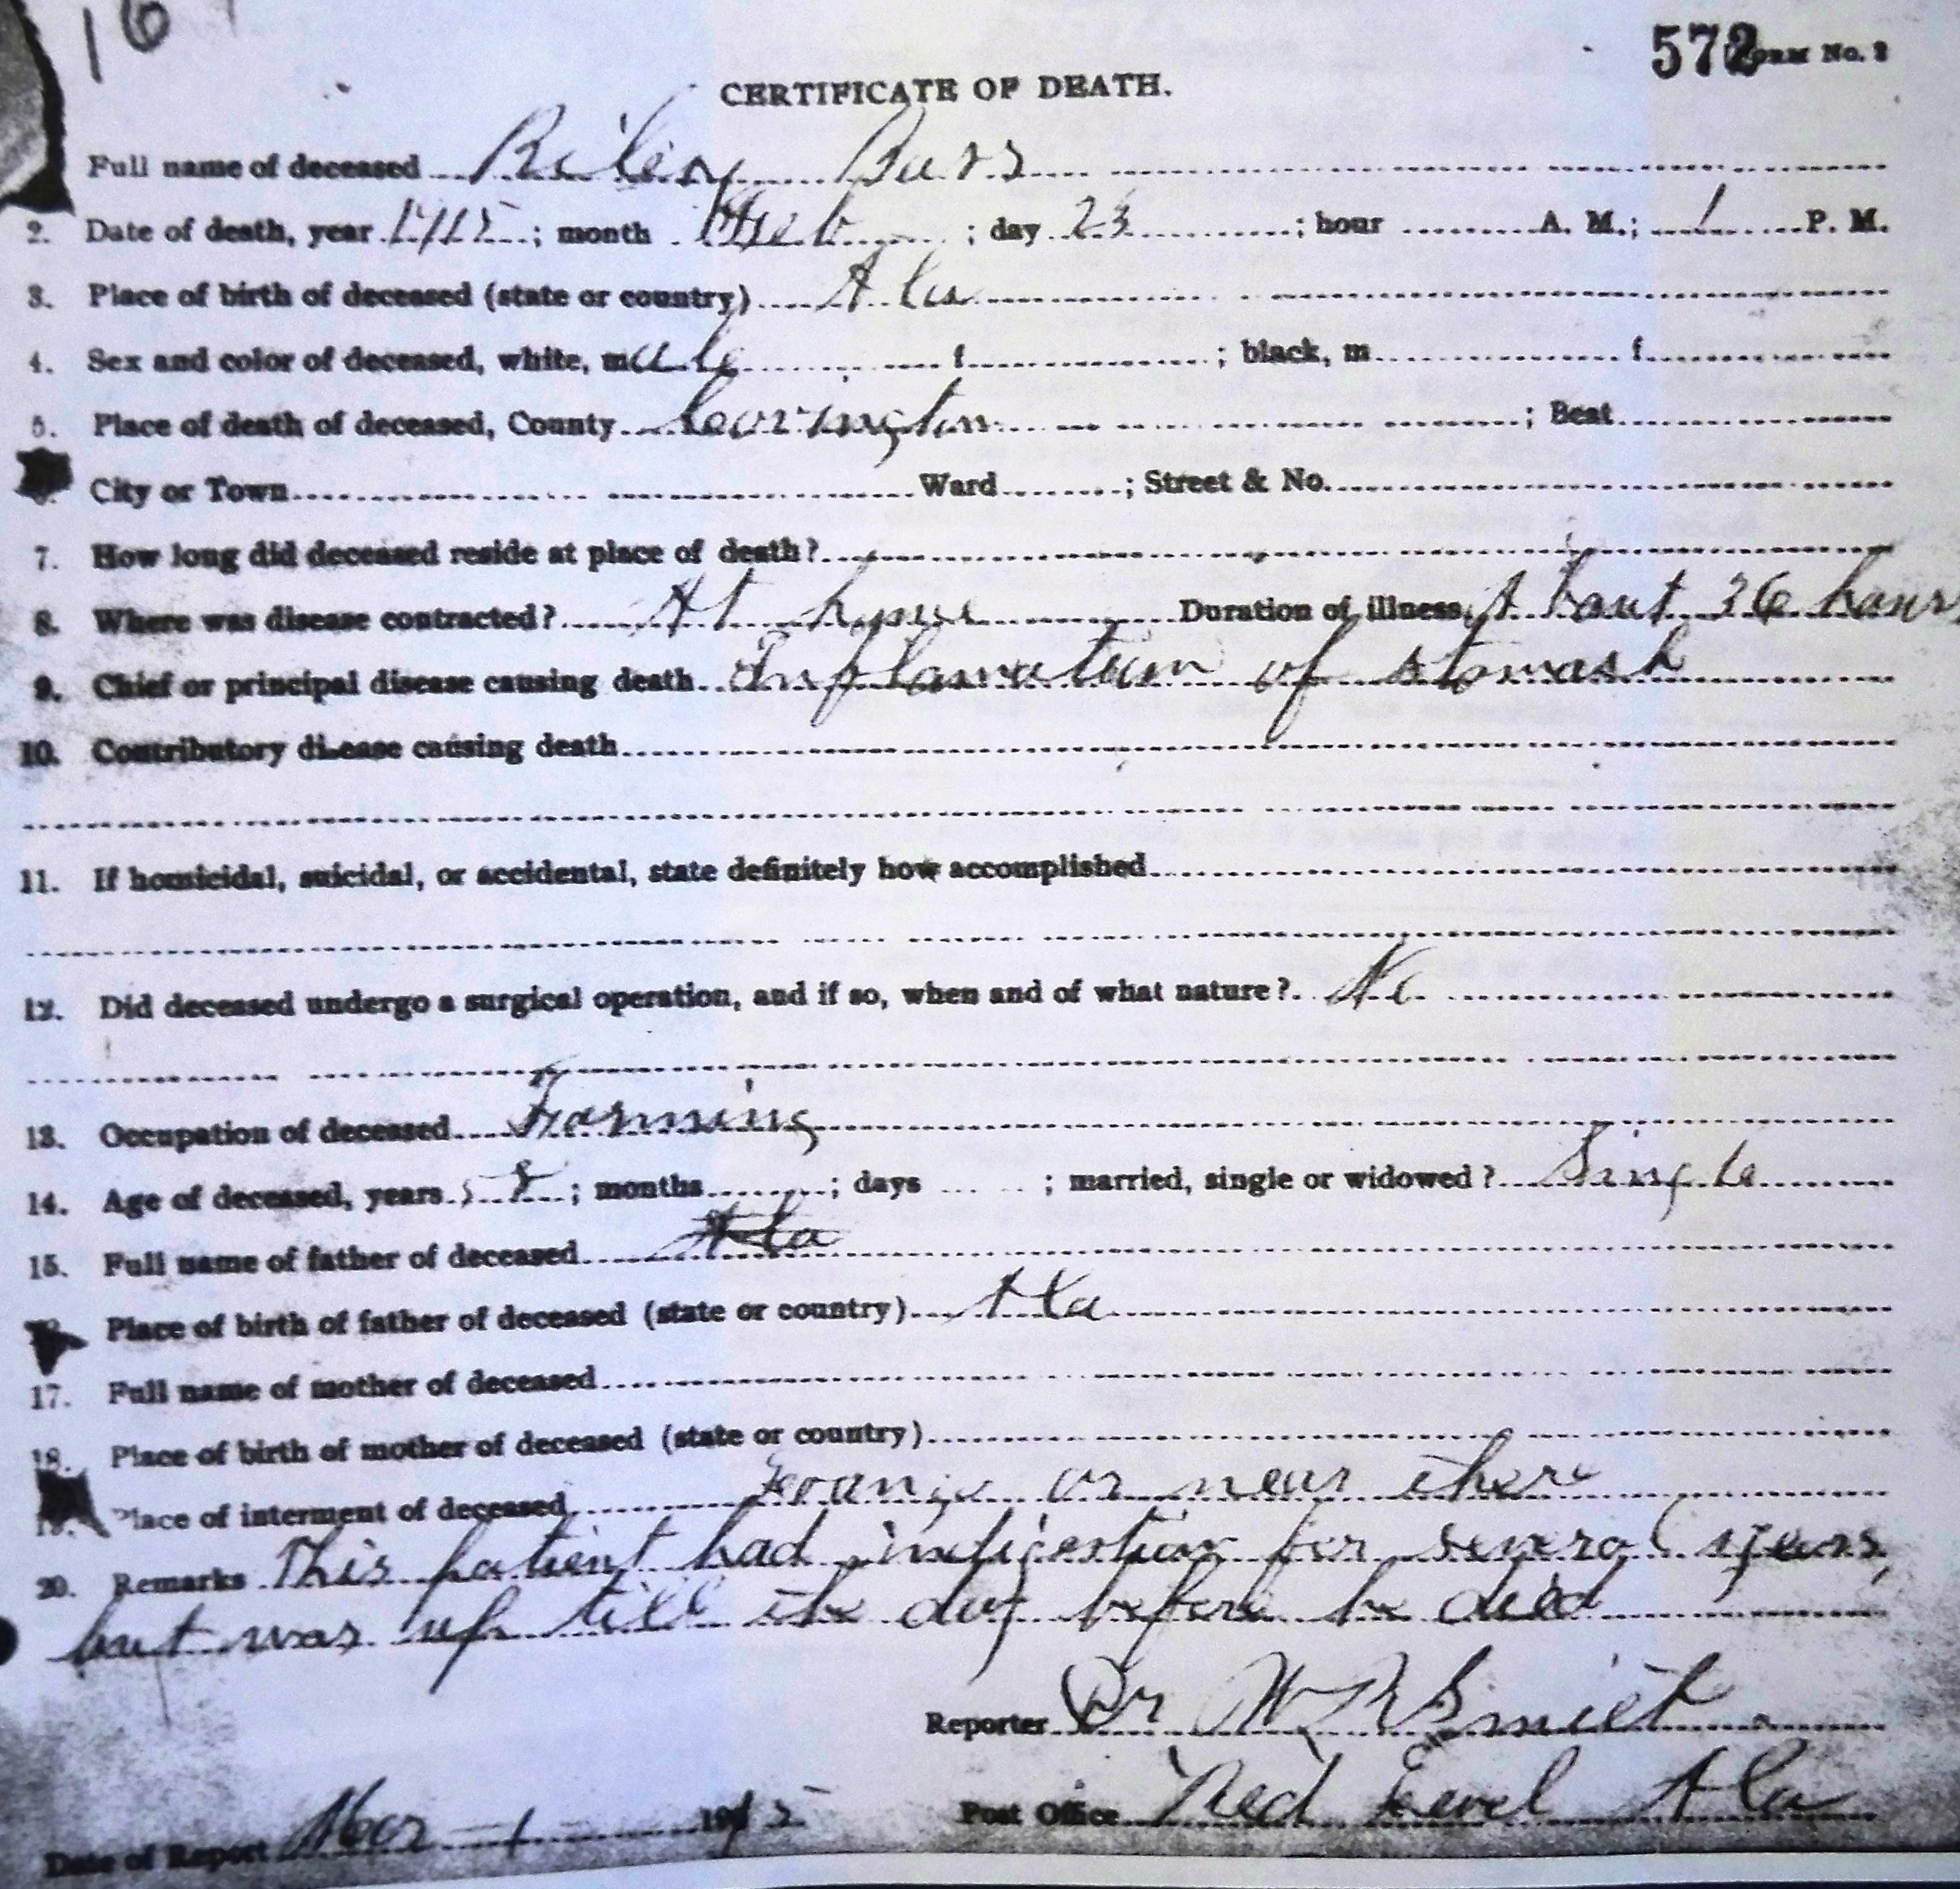 16
572 FORM No. 2
CERTIFICATE OF DEATH.
Full name of deceased Riley Bass
2. Date of death, year 1915; month Feb; day 23; hour A. M.; 1 P. M.
3. Place of birth of deceased (state or country) Ala
4. Sex and color of deceased, white, male f ; black, m f
5. Place of death of deceased, County Covington ; Beat
City or Town Ward ; Street & No.
7. How long did deceased reside at place of death?
8. Where was disease contracted? At home Duration of illness About 36 hours
9. Chief or principal disease causing death Inflamation of stomach
10. Contributory disease causing death
11. If homicidal, suicidal, or accidental, state definitely how accomplished
12. Did deceased undergo a surgical operation, and if so, when and of what nature? No
13. Occupation of deceased Farming
14. Age of deceased, years 58; months ; days ; married, single or widowed? Single
15. Full name of father of deceased Ala
Place of birth of father of deceased (state or country) Ala
17. Full name of mother of deceased
18. Place of birth of mother of deceased (state or country)
19. Place of interment of deceased or near there
20. Remarks This patient had indigestion for several years,
but was up till the day before he died
Reporter Dr W R Smith
Date of Report Mar 1 1915 Post Office Red Level Ala